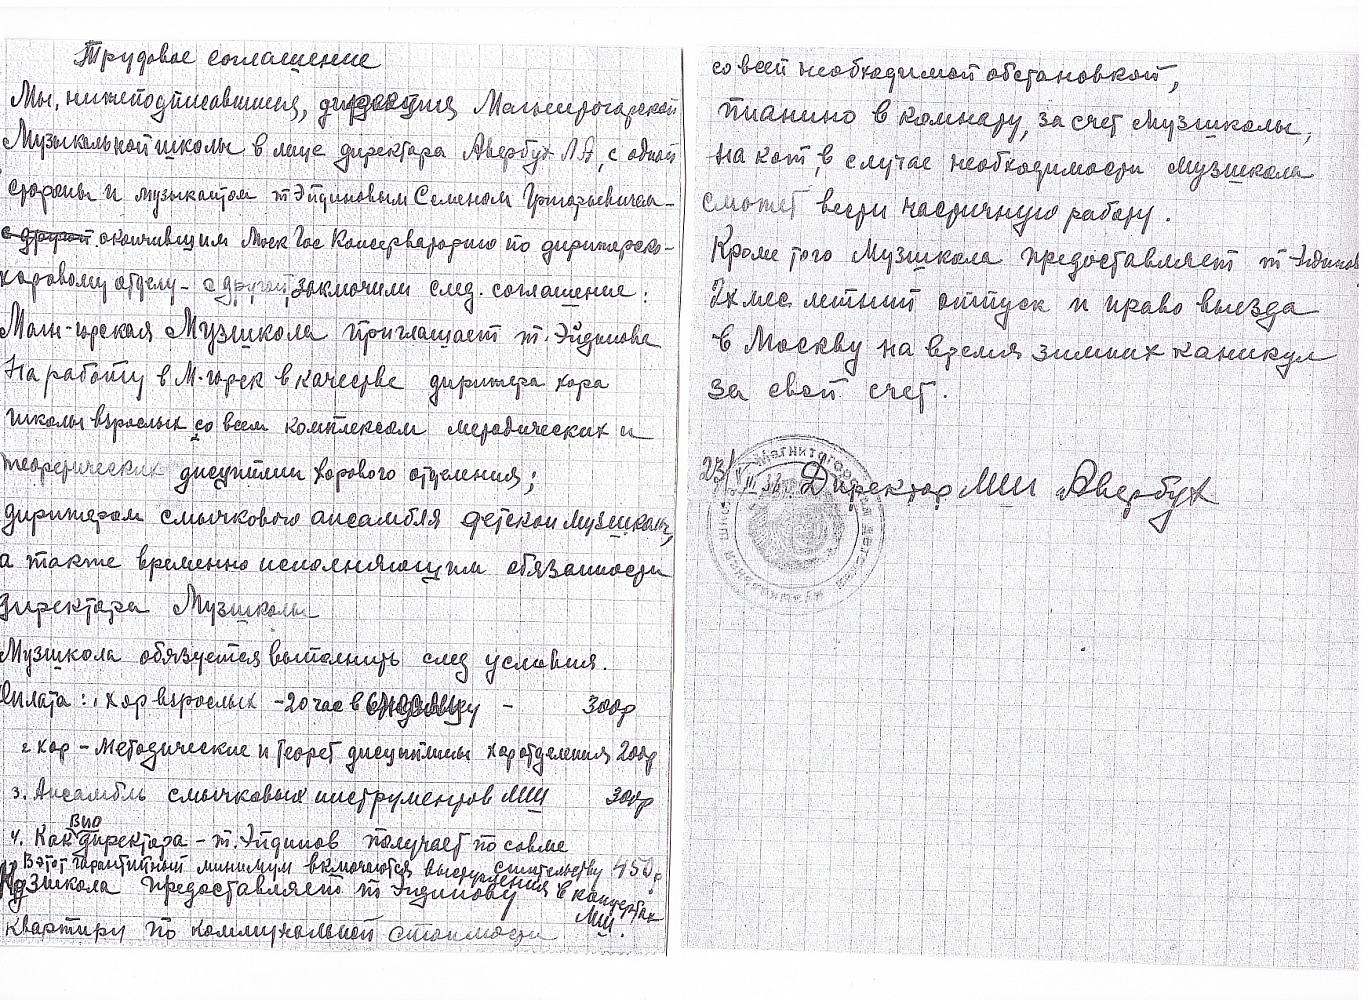 Трудовое соглашение
Мы, нижеподписавшиеся, дирекция Магнитогорской
Музыкальной школы в лице директора Авербух Л.А, с одной
стороны и музыкантом т Эйдиновым Семеном Григорьевичем –
с другой окончившим Моск Гос Консерваторию по дирижерско-
хоровому отделу – с другой, заключили след. соглашение:
Магн-горская Музшкола приглашает т. Эйдинова
на работу в М-горск в качестве дирижера хора
школы взрослых со всем комплексом методических и
теоретических дисциплин хорового отделения;
дирижером смычкового ансамбля детской музшколы,
а также временно исполняющим обязанности
директора Музшколы
Музшкола обязуется выполнить след условия.
Оплата: 1 хор взрослых – 20 час в – 300р
2 хор – методические и теорет дисциплины хоротделения 200р
3. Ансамбль смычковых инструментов МШ 300р
4. Как ВИО директора – т. Эйдинов получает по совме
стительству 450р
В этот гарантийный минимум включаются выступления в концертах МШ.
Музшкола предоставляет т Эйдинову
квартиру по коммунальной стоимости
со всей необходимой обстановкой,
пианино в комнату, за счет Музшколы,
на кот, в случае необходимости музшкола
сможет вести частичную работу.
Кроме того Музшкола предоставляет т Эйдинов
2х мес летний отпуск и право выезда
в Москву на время зимних каникул
за свой счет.
23/ Директор МШ Авербух